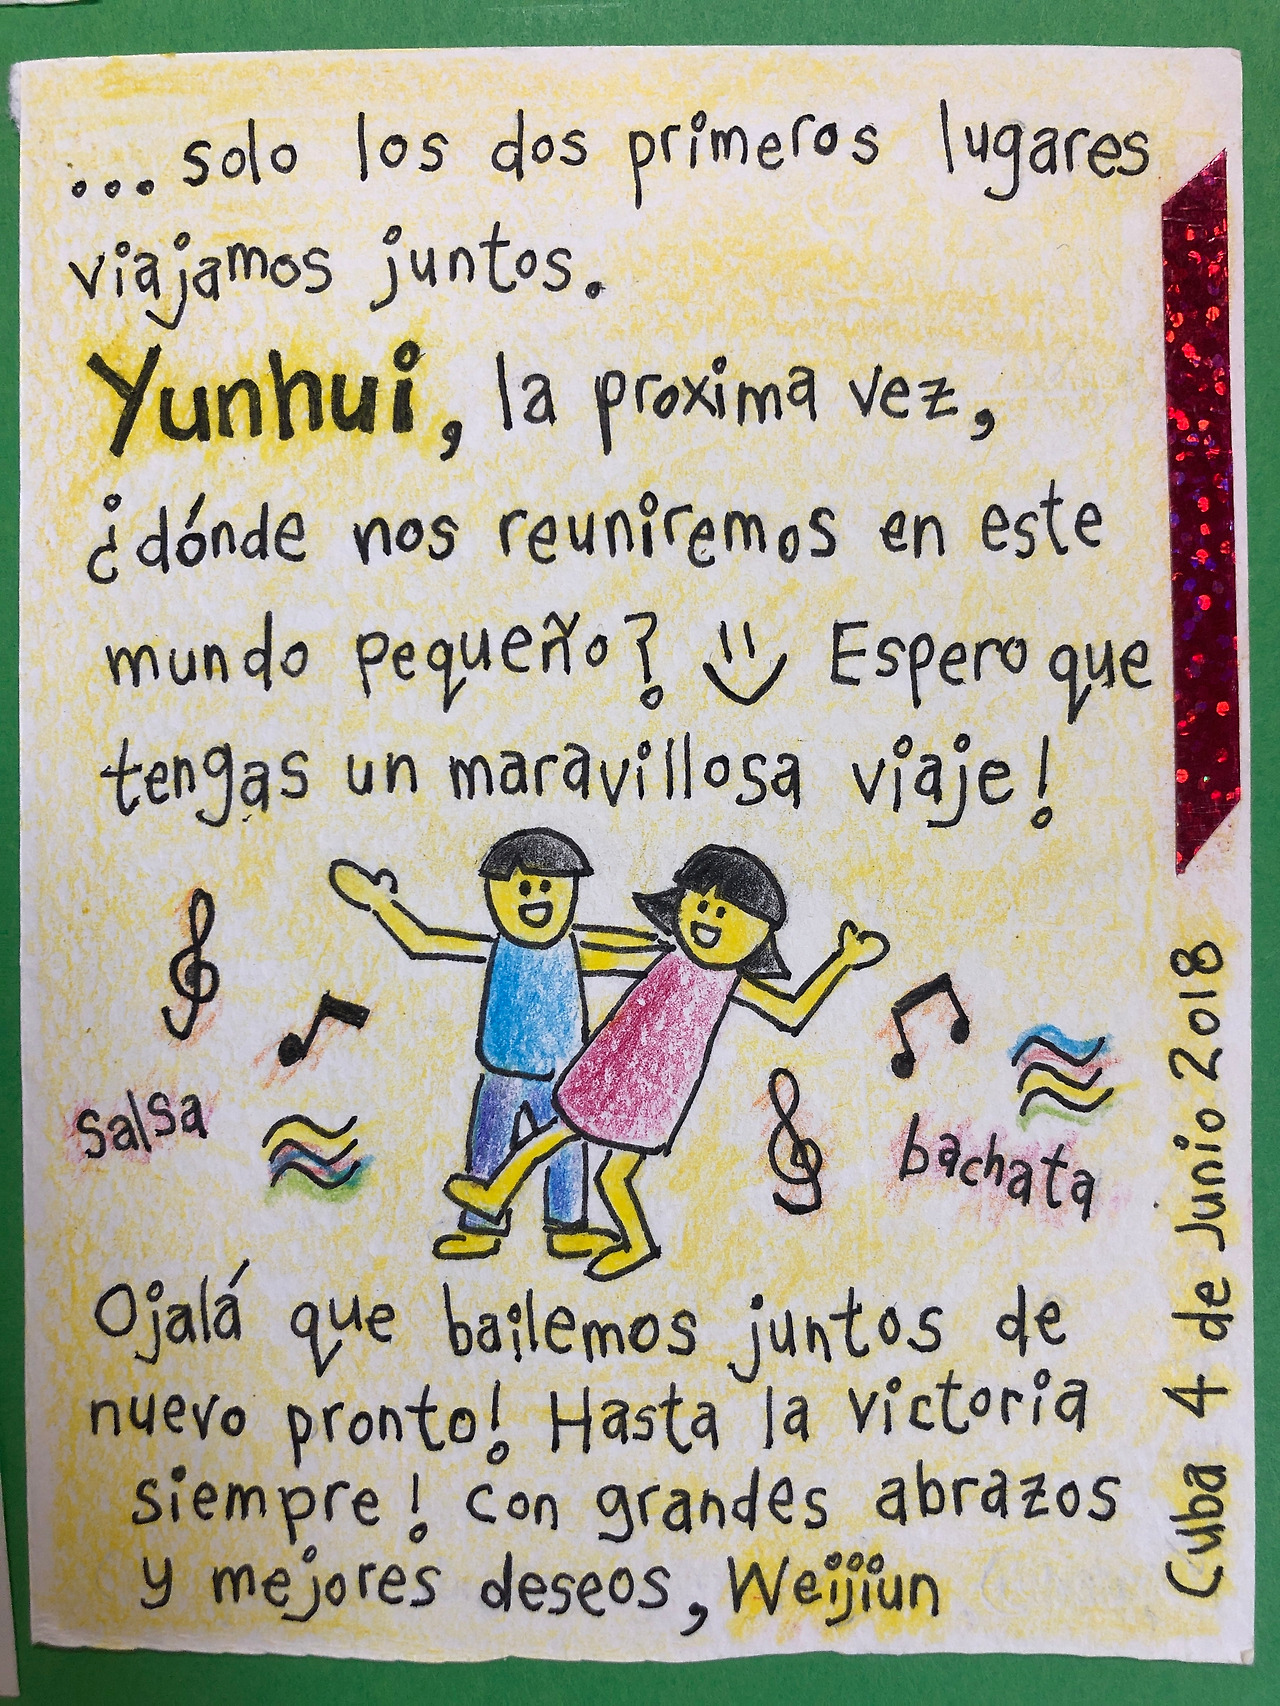 ...solo los dos primeros lugares
viajamos juntos.
Yunhui, la proxima vez,
¿dónde nos reuniremos en este
mundo pequeño? Espero que
tengas un maravillosa viaje!
salsa
bachata
Ojalá que bailemos juntos de
nuevo pronto! Hasta la victoria
siempre! Con grandes abrazos
y mejores deseos, Weijiun
Cuba 4 de Junio 2018